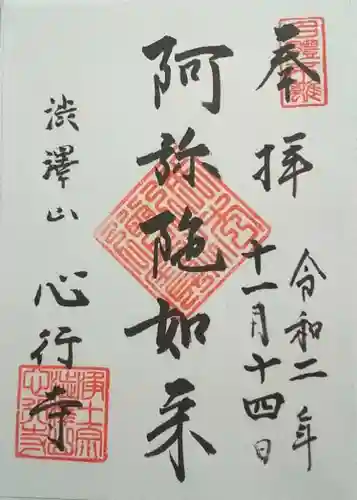 奉拝
令和二年
十一月十四日
阿弥陀如来
渋澤山
心行寺